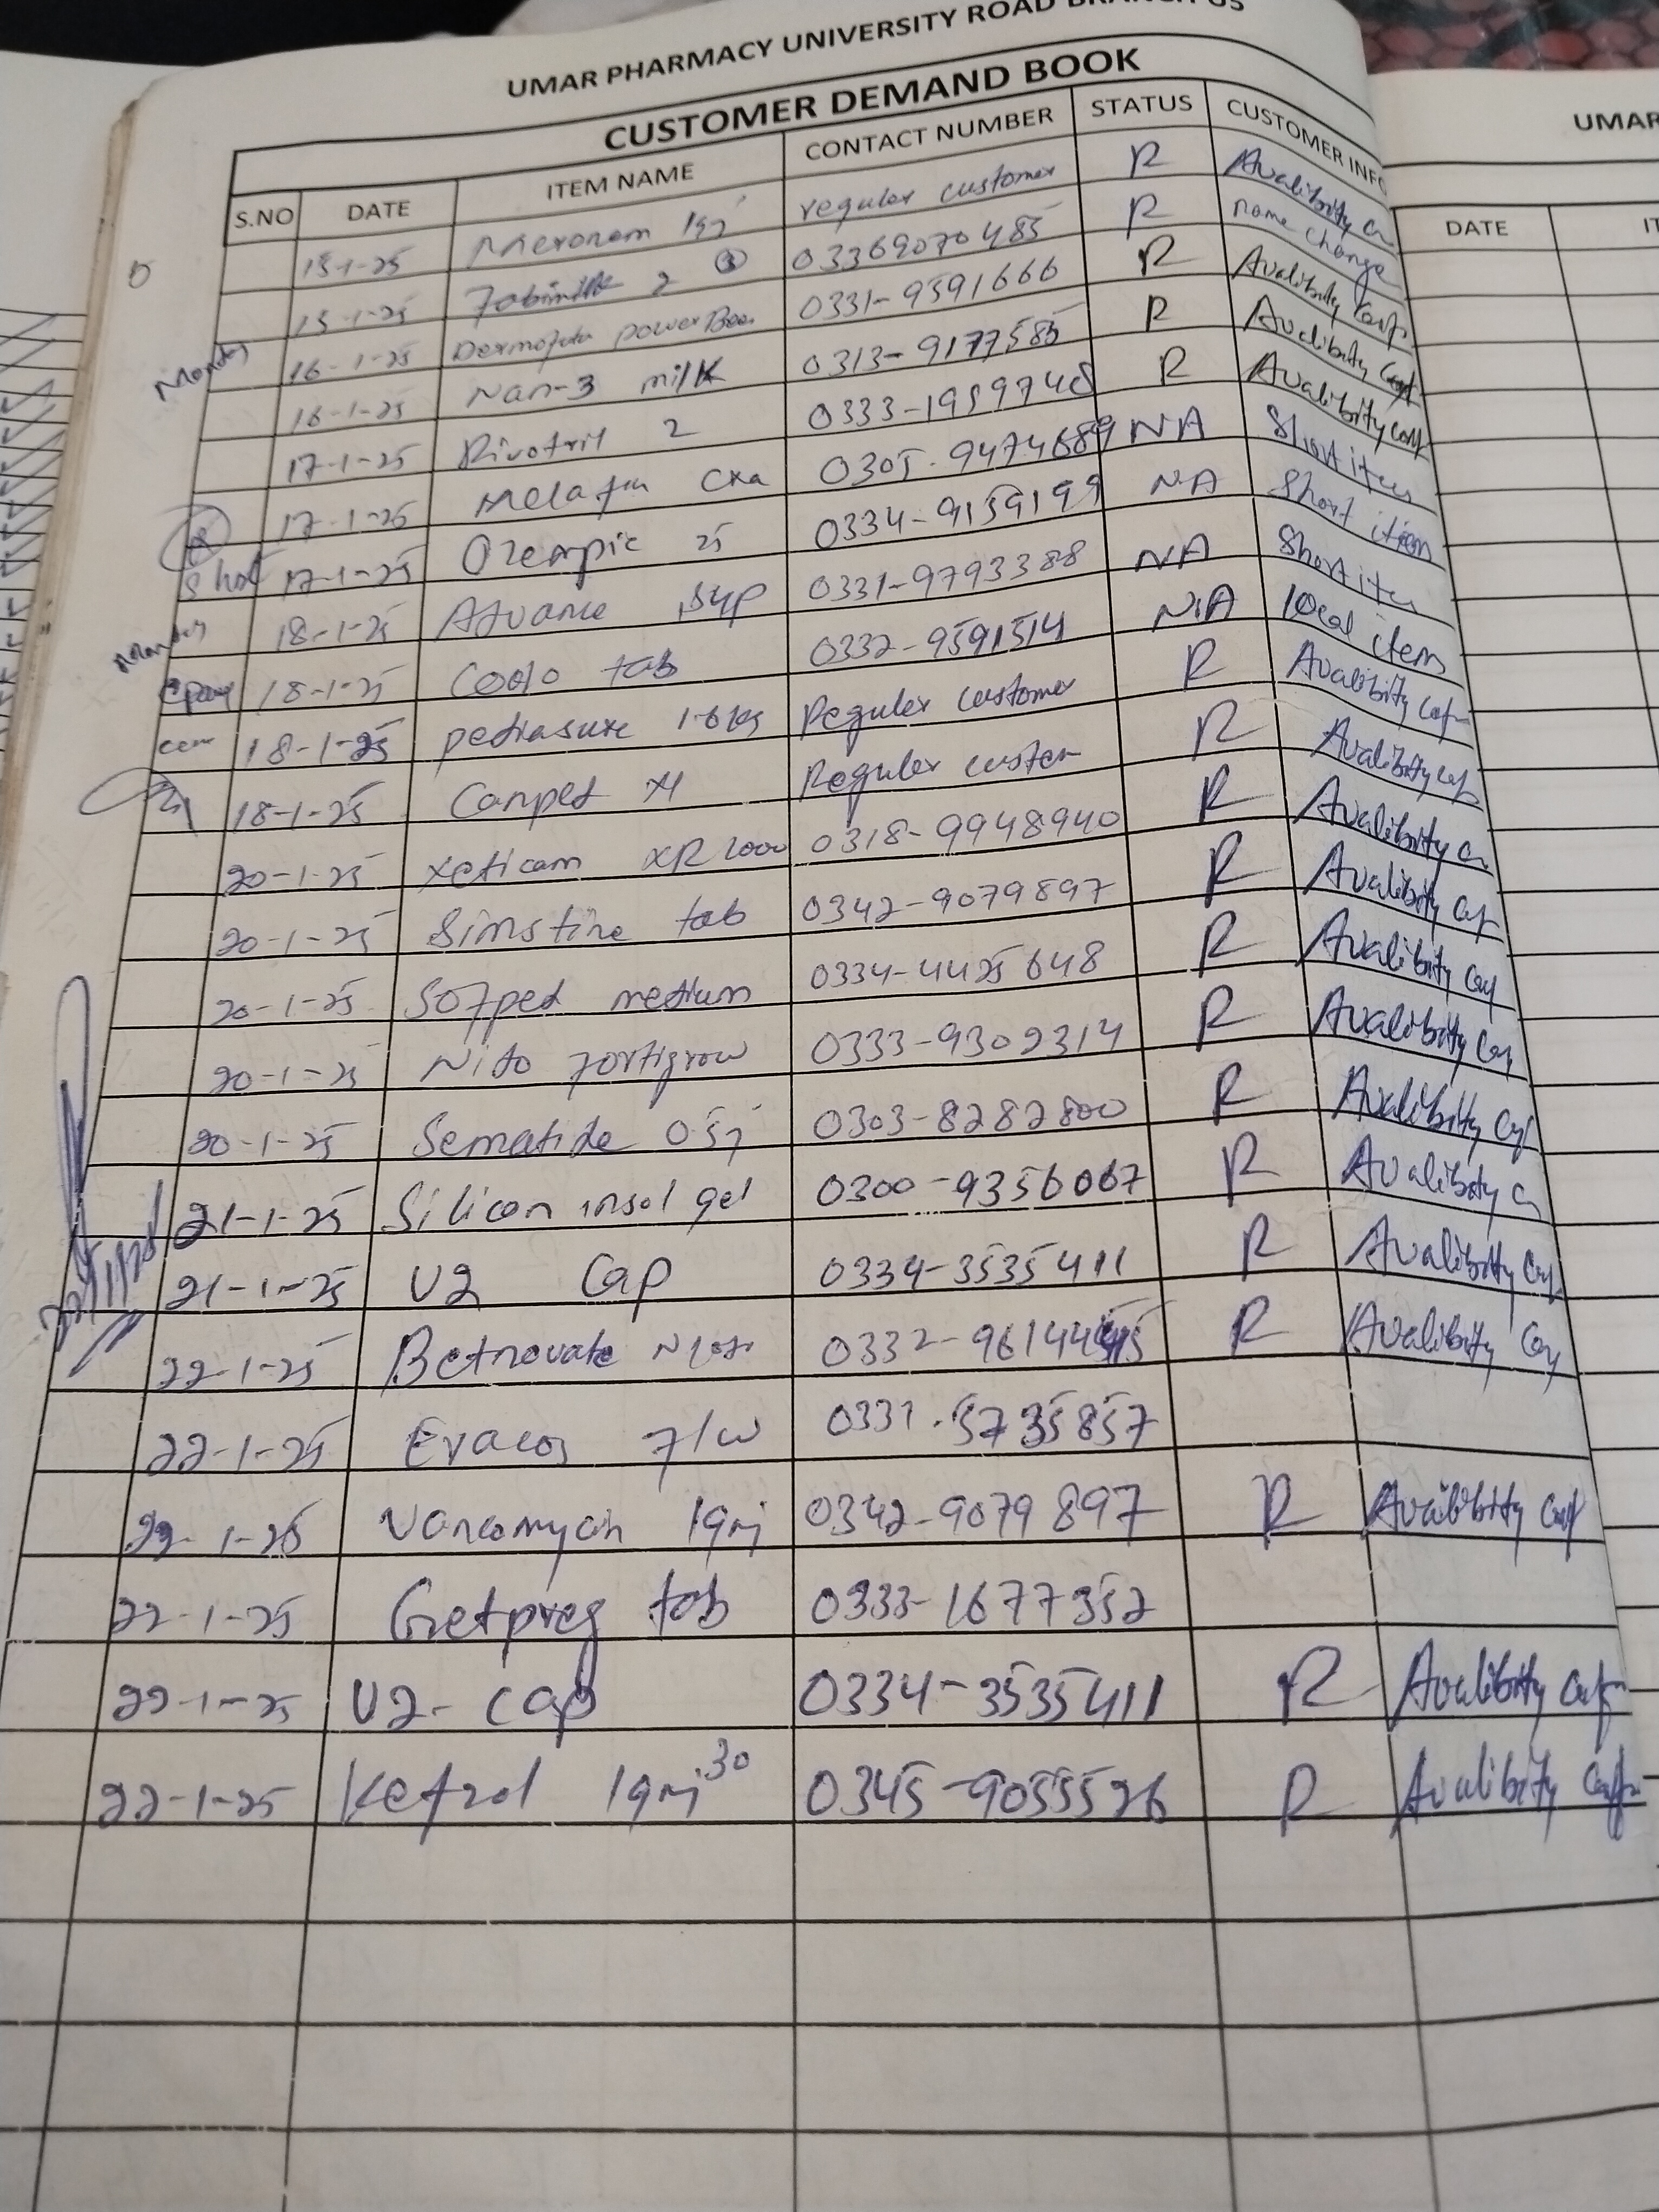 UMAR PHARMACY UNIVERSITY ROAD BRANCH 05
CUSTOMER DEMAND BOOK
S.NO DATE ITEM NAME CONTACT NUMBER STATUS CUSTOMER INFO
15-1-25 Meronem 1gj regular customer R Avalibity
15-1-25 2 03369070485 R name change
Monday 16-1-25 0331-9591666 R Avalibity Conf
16-1-25 Nan-3 milK 0313-9177585 R Avalibity Conf
17-1-25 Rivotril 2 0333-1959748 R Avalibity Conf
17-1-25 0305-9474689 NA Short item
Short 17-1-25 Ozempic 25 0334-9159199 NA Short item
Monday 18-1-25 Advance syp 0331-9793388 NA Short item
18-1-25 tab 0332-9591514 N.A local item
18-1-25 pediasure 1-6 Kg Reguler customer R Avalibity Conf
18-1-25 Canped Xl Reguler custom R Avalibity Conf
20-1-25 xeticam XR 1000 0318-9948940 R Avalibity
20-1-25 Simstine tab 0342-9079897 R Avalibity Conf
20-1-25 Sofped medium 0334-4425648 R Avalibity Conf
20-1-25 Nido fortigrow 0333-9302314 R Avalibity Conf
20-1-25 Sematide 0.5j 0303-8282800 R Avalibity Conf
21-1-25 Silicon insol gel 0300-9356067 R Avalibity
21-1-25 U2 Cap 0334-3535411 R Avalibity Conf
22-1-25 Betnovate N R Avalibity Conf
22-1-25 Evacos f/w 0331-5735857
22-1-25 Vancomycin 1gmj 0342-9079897 R Availibity Conf
22-1-25 Getpreg tab 0333-1677352
22-1-25 U2- cap 0334-3535411 R Avalibity Conf
22-1-25 Kefzol 1gmj 30 0345-9055526 R Avalibity Conf
UMAR
DATE IT